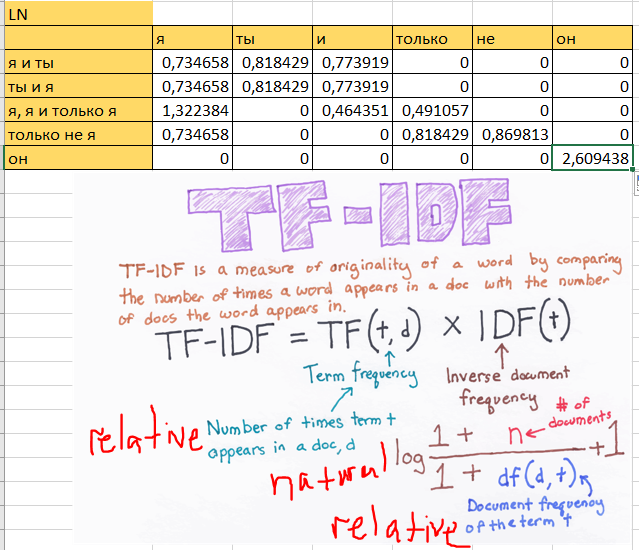 LN
я ты и только не он
я и ты 0,734658 0,818429 0,773919 0 0 0
ты и я 0,734658 0,818429 0,773919 0 0 0
я, я и только я 1,322384 0 0,464351 0,491057 0 0
только не я 0,734658 0 0 0,818429 0,869813 0
он 0 0 0 0 0 2,609438
TF-IDF
TF-IDF is a measure of originality of a word by comparing
the number of times a word appears in a doc with the number
of docs the word appears in.
TF-IDF = TF(t, d) × IDF(t)
Term frequency
Inverse document
frequency
relative
Number of times term t
appears in a doc, d
# of
documents
natural
log 1 + n
1 + df(d, t)
+ 1
relative
Document frequency
of the term t